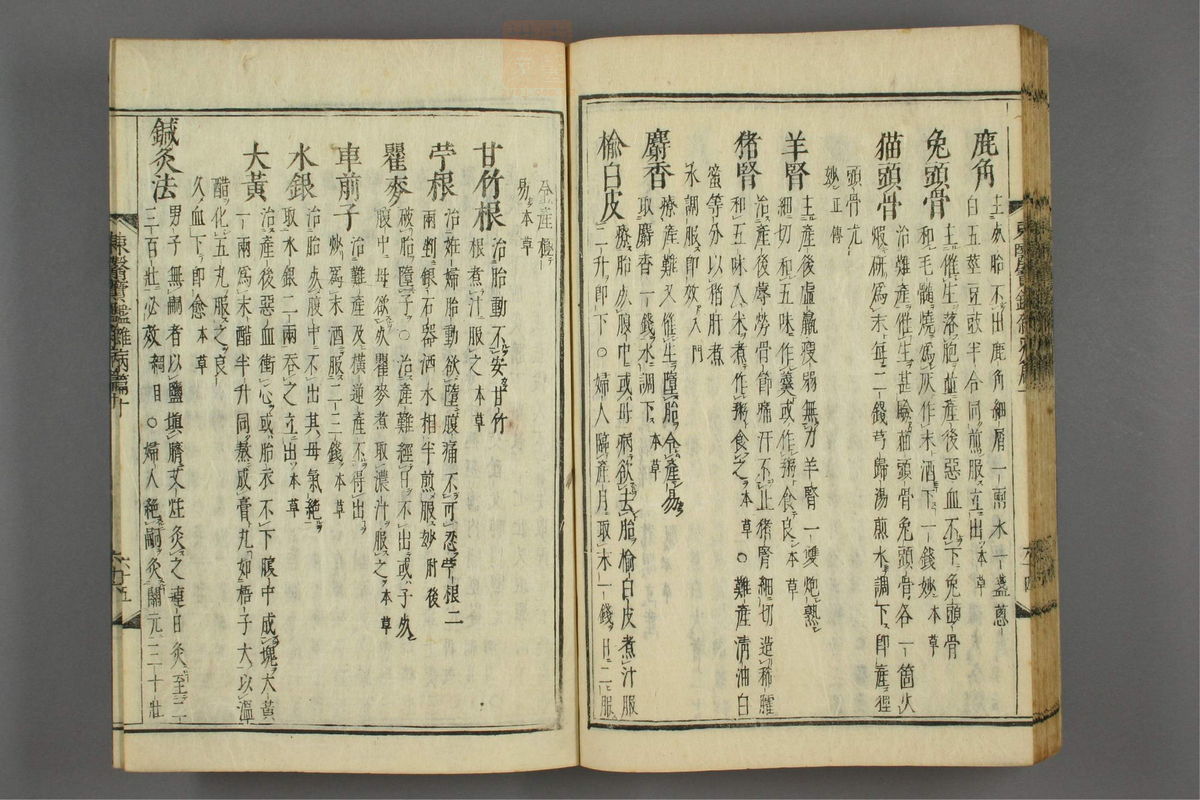 鹿角 主死胎不出鹿角細屑一兩水一盞葱
白五莖豆豉半合同煎服立出本草
兔頭骨 主催生落胞並產後惡血不下兔頭骨
和毛髓燒爲灰作末酒下一錢妙本草
猫頭骨 治難產催生甚驗猫頭骨兔頭骨各一箇火
煆研爲末每二錢芎歸湯煎水調下即產狸
頭骨尤
妙正傳
羊腎 主產後虛羸瘦弱無力羊腎一雙炮熟
細切和五味作羹或作粥食良本草
猪腎 治產後蓐勞骨節痛汗不止猪腎細切造稀臛
和五味入米煮作粥食之本草○難產淸油白
蜜等分以猪肝煮
水調服即效入門
麝香 療產難又催生墮胎令產易
取麝香一錢水調下本草
楡白皮 療胎死腹中或母病欲去胎楡白皮煮汁服
二升即下○婦人臨產月取末一錢日二服
令產極
易本草
甘竹根 治胎動不安甘竹
根煮汁服之本草
苧根 治姙婦胎動欲墮腹痛不可忍苧根二
兩剉銀石器酒水相半煎服妙肘後
瞿麥 破胎墮子○治產難經日不出或子死
腹中母欲死瞿麥煮取濃汁服之本草
車前子 治難產及橫逆產不得出
炒爲末酒服二三錢本草
水銀 治胎死腹中不出其母氣絕
取水銀二兩吞之立出本草
大黃 治產後惡血衝心或胎衣不下腹中成塊大黃
一兩爲末醋半升同熬成膏丸如梧子大以溫
醋化五丸服之良
久血下即愈本草
鍼灸法 男子無嗣者以鹽塡臍艾炷灸之連日灸至二
三百壯必效綱目○婦人絕嗣灸關元三十壯
東醫寶鑑雜病篇十
六十五